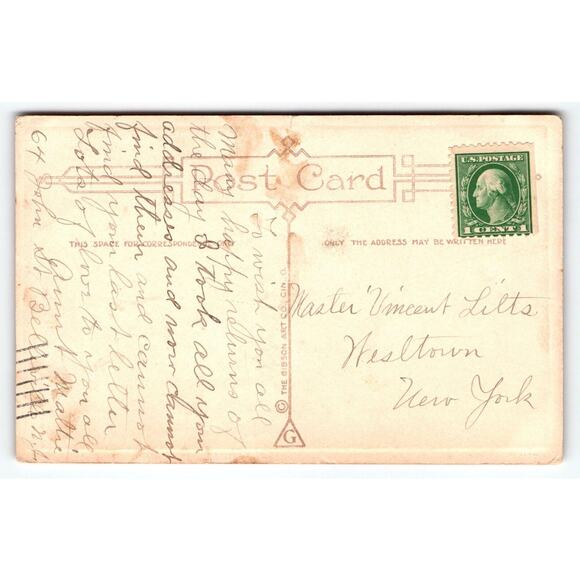 Post Card
THIS SPACE FOR CORRESPONDENCE
ONLY THE ADDRESS MAY BE WRITTEN HERE
U.S. POSTAGE
1 CENT 1
THE GIBSON ART CO., CIN. O.
G
Master Vincent Lilts
Wesltown
New York
To wish you all
Many happy returns of
the day I took all your
addresses and now cannot
find them and cannot
find your last letter
Lots of love to you all
Aunt Mattie
64 St Belleville N.J.